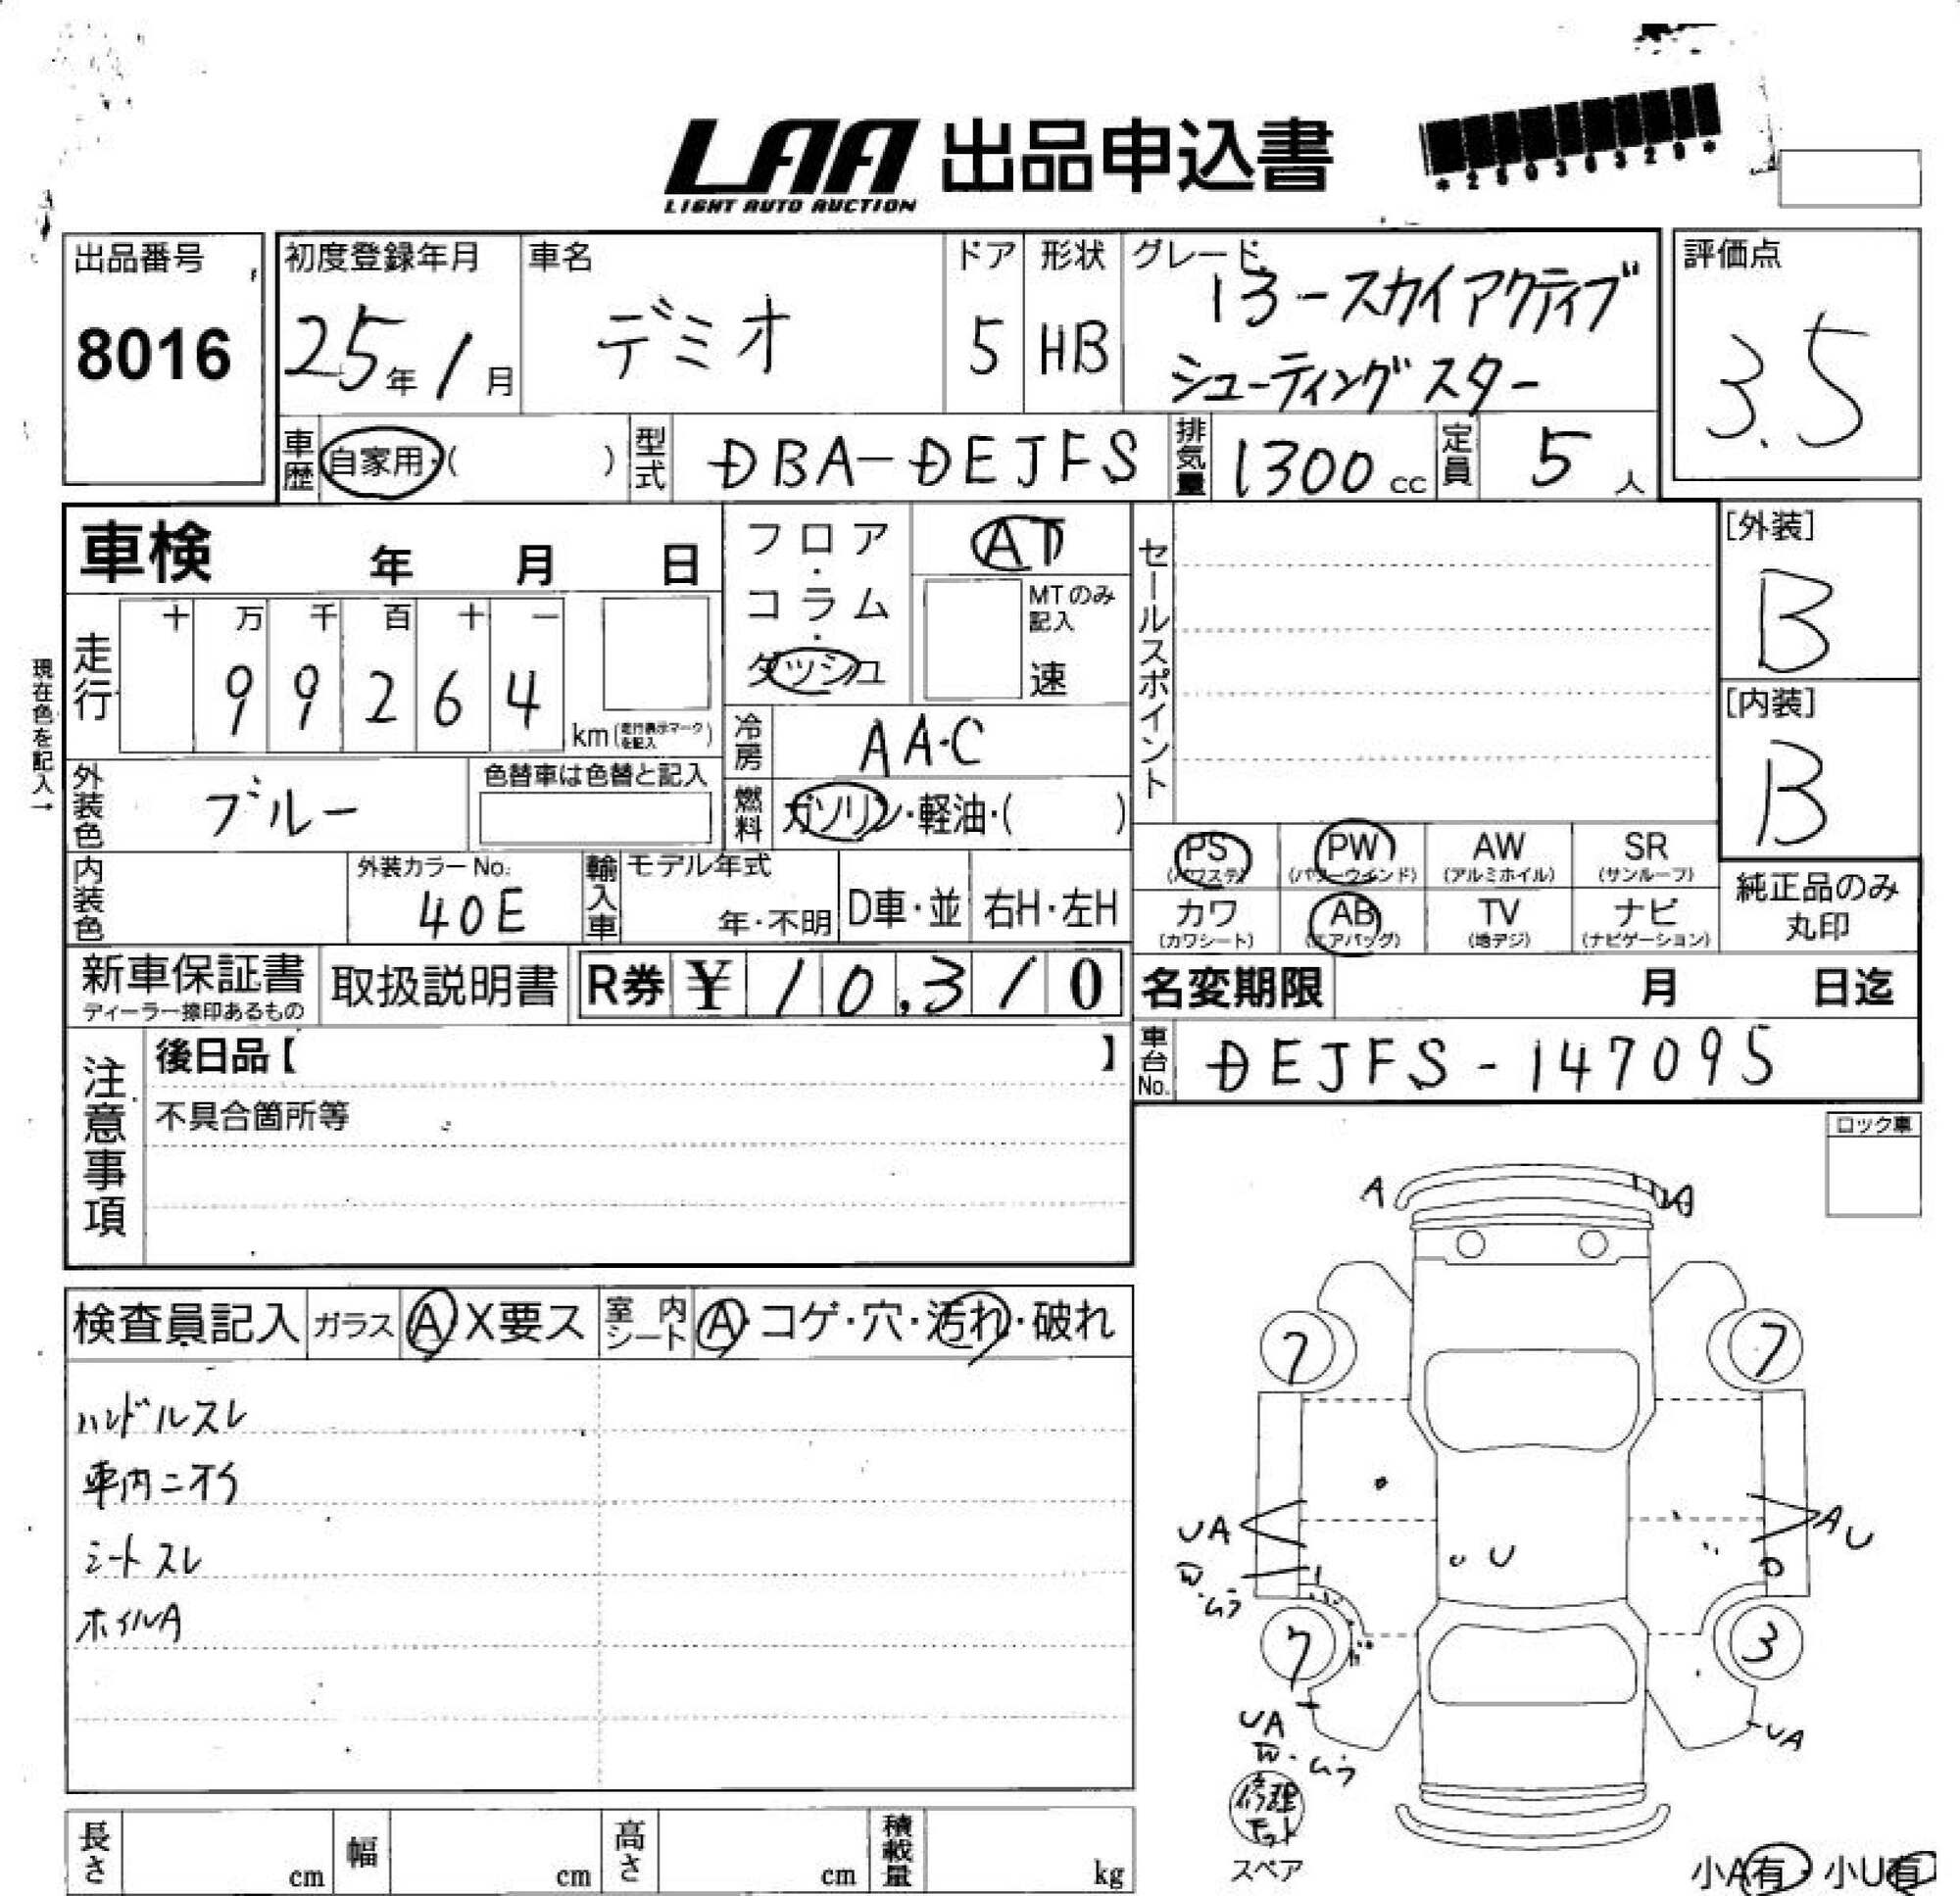 LAA 出品申込書
LIGHT AUTO AUCTION
出品番号
8016
初度登録年月
25年1月
車名
デミオ
ドア
5
形状
HB
グレード
13-スカイアクティブ
シューティングスター
評価点
3.5
車歴
自家用・( )
型式
DBA-DEJFS
排気量
1300 cc
定員
5人
車検 年 月 日
フロア・コラム・ダッシュ
AT
MTのみ記入
速
セールスポイント
[外装]
B
[内装]
B
現在色を記入→
走行
十 万 千 百 十 一
9 9 2 6 4
km (走行表示マークを記入)
冷房
AA・C
燃料
ガソリン・軽油・( )
外装色
ブルー
色替車は色替と記入
内装色
外装カラーNo.
40E
輸入車
モデル年式
年・不明
D車・並
右H・左H
PS (パワステ)
PW (パワーウインド)
AW (アルミホイル)
SR (サンルーフ)
カワ (カワシート)
AB (エアバッグ)
TV (地デジ)
ナビ (ナビゲーション)
純正品のみ
丸印
新車保証書
ディーラー捺印あるもの
取扱説明書
R券 ¥ 10,310
名変期限 月 日迄
車台No.
DEJFS-147095
注意事項
後日品【 】
不具合箇所等
ロック車
検査員記入
ガラス
A X要ス
室内シート
A・コゲ・穴・汚れ・破れ
ハンドルスレ
車内ニオイ
シートスレ
ホイルA
A
A
7
7
UA
U
AU
7
3
UA
UA
修理キット
スペア
小A有・小U有
長さ cm
幅 cm
高さ cm
積載量 kg